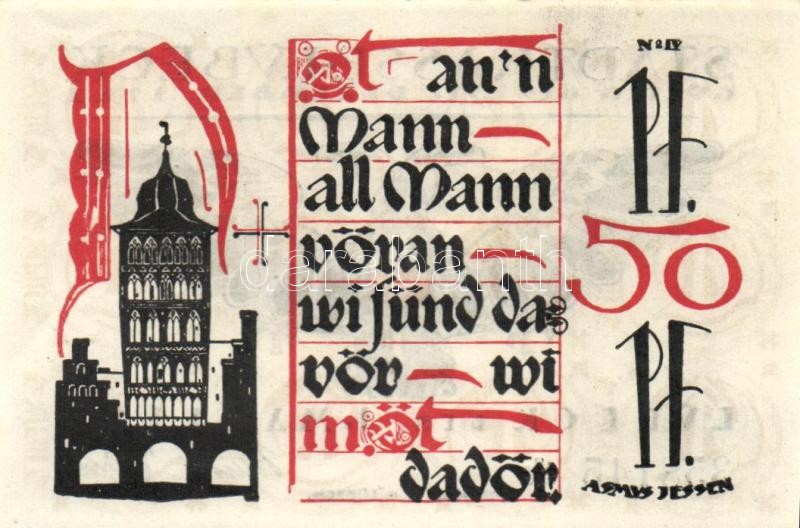 Not an'n
Mann
all Mann
vöran
wi sünd da-
vör — wi
möt
dadör.
No IV
PF.
50
PF.
ASMUS JESSEN
darabanth